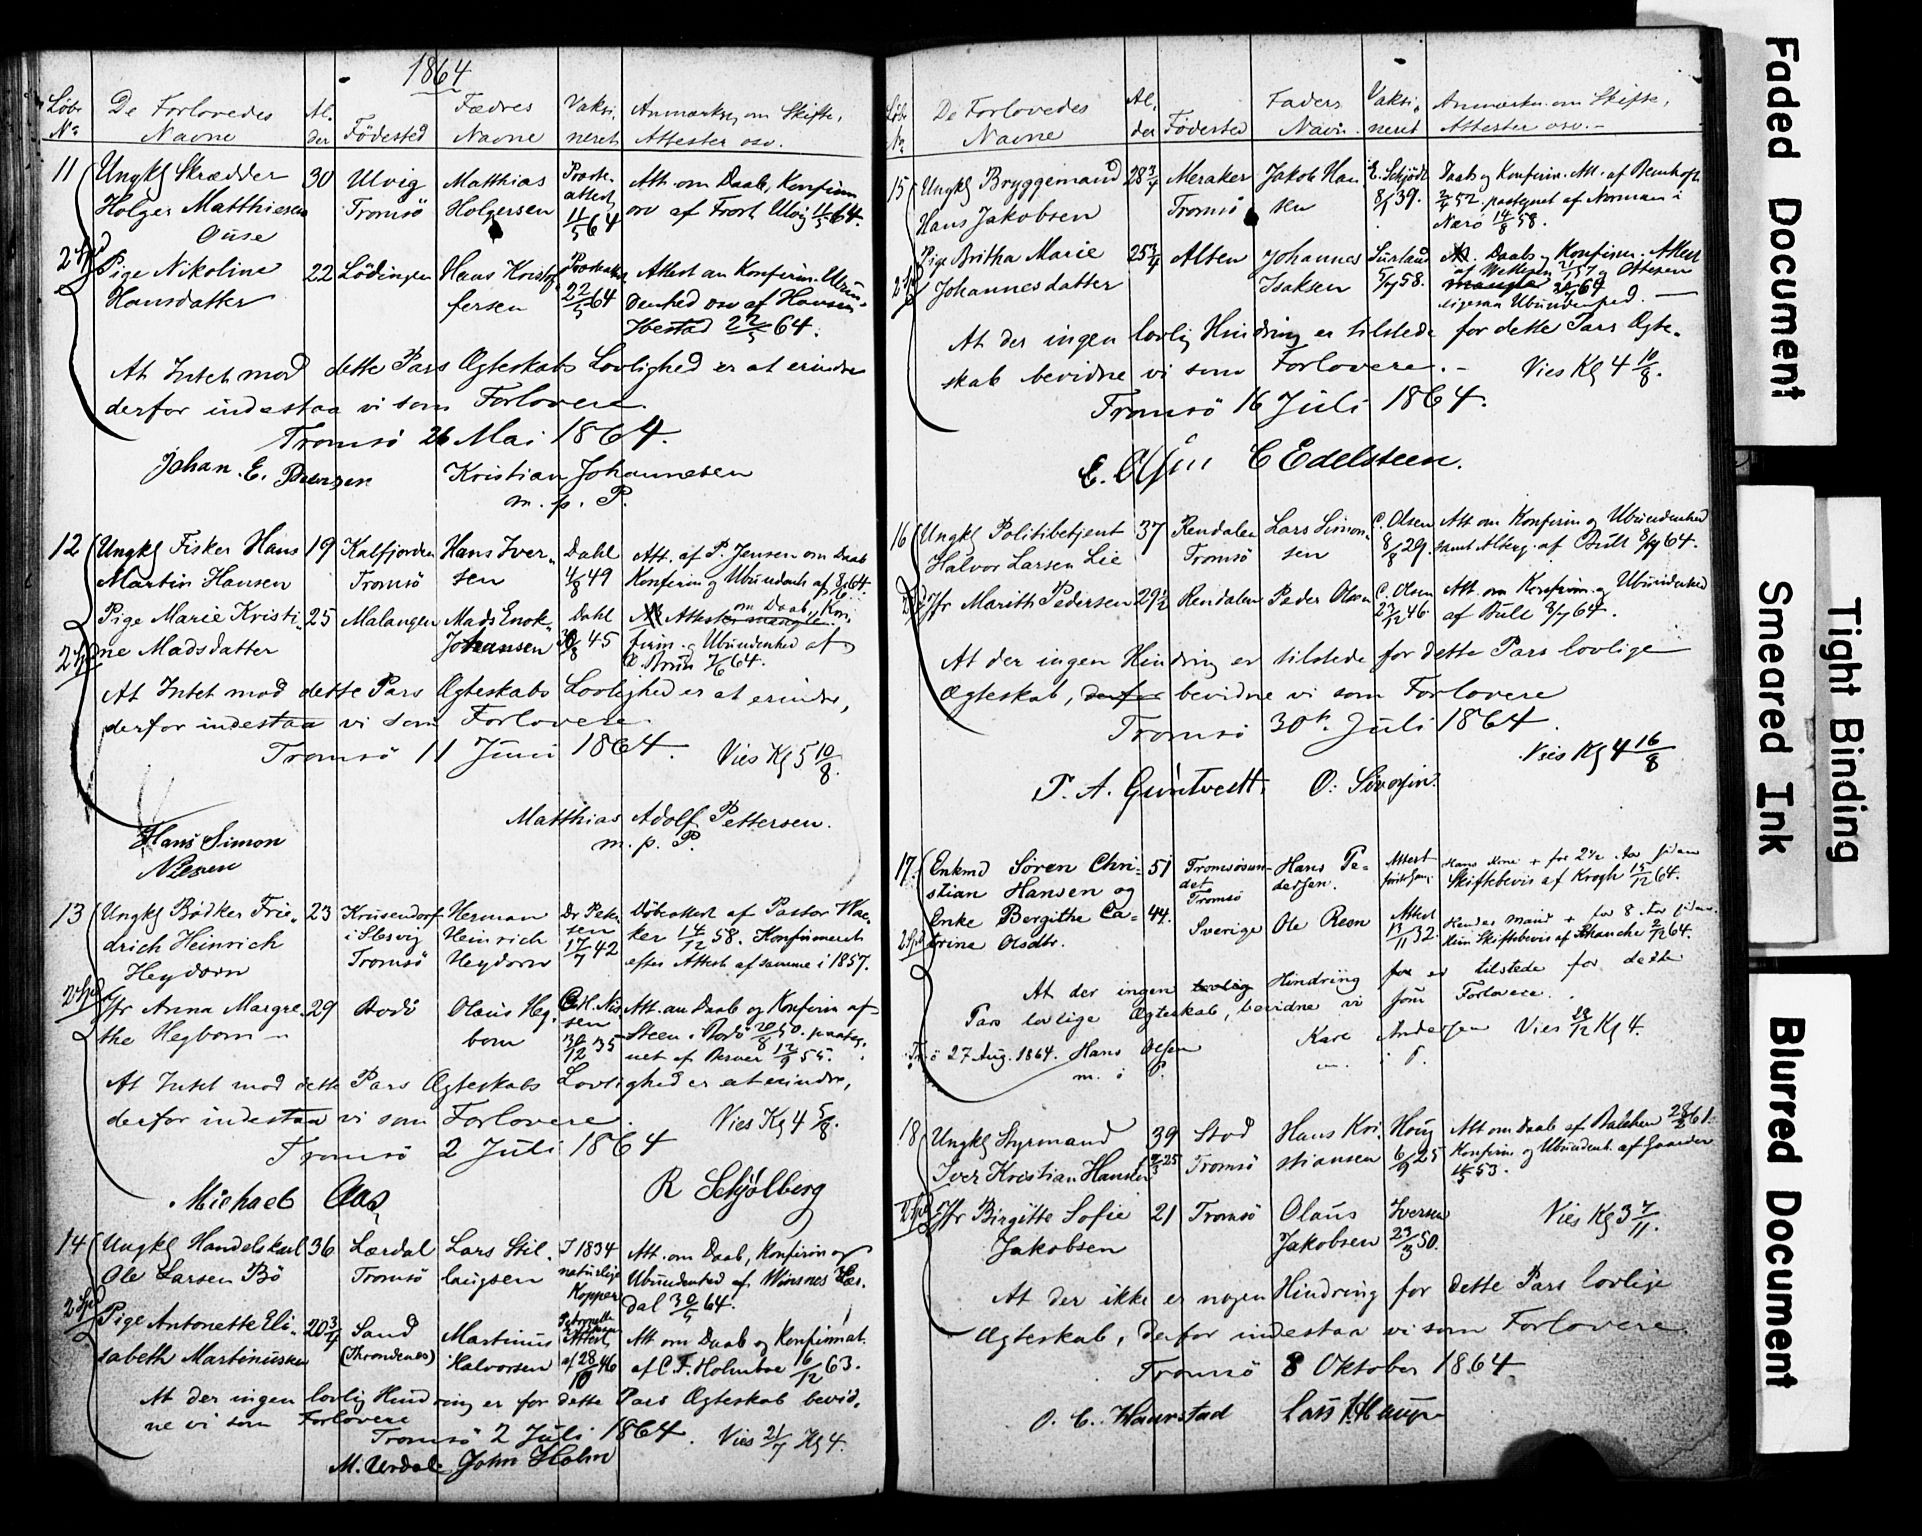 1864
Löbe No
De Forlovedes Navne
Al. der
Födested
Fædres Navne
Vaksi. neret
Anmærkn. om Skifte, Attester osv.
11
Ungkl Skrædder
Holger Matthiesen
Ouse
30
Ulvig
Tromsö
Matthias
Holgersen
Præste-
attest
11/5 64
Att. om Daab, Konfirm
osv af Provst Ulvig 11/5 64.
Pige Nikoline
Hansdatter
22
Lödingen
Hans Kristof
fersen
22/5 64
Attest om Konfirm.
denhed osv af Hansen
Ibestad 22/5 64.
At Intet mod dette Pars Ægteskabs Lovlighed er at erindre
derfor indestaa vi som Forlovere
Tromsö 26 Mai 1864.
Johan. E. Kristian Johannesen
m. p. P.
12
Ungkl Fisker Hans
Martin Hansen
19
Kalfjorden
Tromsö
Hans Iver-
sen
Dahl
4/8 49
Att. af P. Jensen om Daab
Konfirm og Ubundenh af 8/6 64.
Pige Marie Kristi-
ne Madsdatter
25
Malangen
Mads Enok-
Johansen
Dahl
30/8 45
Attest om Daab, Kon-
firm. og Ubundenhed af
7/6 64.
At Intet mod dette Pars Ægteskabs Lovlighed er at erindre,
derfor indestaa vi som Forlovere
Tromsö 11 Juni 1864. Vies Kl 5 10/8.
Matthias Adolf Pettersen.
m. p. P.
Hans Simon
Nilsen
13
Ungkl Bödker Frie-
drich Heinrich
Heydorn
23
Krusendorf
i Slesvig
Tromsö
Herman
Heinrich
Heydorn
Dr Peter-
sen
17/7 42
Döbeattest af Pastor Wae-
ker 14/12 58. Konfirmeret
efter Attest af samme i 1857.
Jfr Anna Margre-
the Hegbom
29
Bodö
Olaus Heg-
bom
Nis-
sen
/12 35
Att. om Daab og Konfirm af
Steen i Bodö 20/8 50. paateg-
net af Berner 12/9 55.
At Intet mod dette Pars Ægteskabs Lovlighed er at erindre,
derfor indestaa vi som Forlovere. Vies Kl 4 5/8.
Tromsö 2 Juli 1864
Michael Aas R Schjölberg
14
Ungkl Handelskarl
Ole Larsen Bö
36
Lærdal
Tromsö
Lars Stil-
laugsen
I 1834
naturlige
Kopper
Att. om Daab, Konfirm og
Ubundenhed af Winsnes Lær-
dal 30/5 64.
Pige Antonette Eli-
sabeth Martinusen
20 3/4
Sand
(Throndenes)
Martinus
Halvorsen
Attest
af 28/10 46
Att om Daab og Konfirmat.
af C. F. Holmboe 16/12 63.
At der ingen lovlig Hindring er for dette Pars Ægteskab bevid-
ne vi som Forlovere
Tromsö 2 Juli 1864. Vies 21/7 Kl 4.
M. Urdal John Holm
Löbe No
De Forlovedes Navne
Al. der
Födested
Faders Navn
Vaksi. neret
Anmærkn. om Skifte, Attester osv.
15
Ungkl Bryggemand
Hans Jakobsen
28 3/4
Meraker
Tromsö
Jakob Han
sen
E. Schjödt
8/1 39.
Daab og Konfirm. Att. af
52. paategnet af Norman i
Nærö 14/8 58.
Pige Britha Marie
Johannesdatter
25 3/4
Alten
Johannes
Isaksen
5/7 58.
Daab og Konfirm. Attest
ligesaa Ubundenhed.
At der ingen lovlig Hindring er tilstede for dette Pars Ægte-
skab bevidne vi som Forlovere. Vies Kl 4 10/8.
Tromsö 16 Juli 1864.
C. Olsen C Edelsteen.
16
Ungkl Politibetjent
Halvor Larsen Lie
37
Rendalen
Tromsö
Lars Simon-
sen
C. Olsen
8/8 29.
Att om Konfirm og Ubundenhed
samt Alberg. af Bull 8/7 64.
Jfr Marith Pedersen
29 1/2
Rendalen
Peder Olsen
C. Olsen
27/12 46.
Att. om Konfirm. og Ubundenhed
af Bull 8/7 64.
At der ingen Hindring er tilstede for dette Pars lovlige
Ægteskab, derfor bevidne vi som Forlovere
Tromsö 30te Juli 1864.
Vies Kl 4 16/8
17.
Enkmd Sören Chri-
stian Hansen og
51
Tromsösun-
det
Tromsö
Hans Pe-
dersen.
Attest
Hans Kone + for 2 1/2 Aar siden
Skiftebevis af Krogh 15/12 64.
Enke Bergithe Ca-
trine Olsdtr.
44.
Sverige
Ole
Attest
13/11 32.
Hendes Mand + for 8 Aar siden.
Skiftebevis af 2/12 64.
At der ingen lovlig Hindring for er tilstede for dette
Pars lovlige Ægteskab, bevidne vi som Forlovere.
Vies 28/12 Kl 4.
27 Aug. 1864. Hans Olsen
Andersen
18
Ungkl Styrmand
Iver Kristian Hansen
39
Stod
Tromsö
Hans Kri-
stiansen
Houg
6/9 25
Att om Daab af 61.
Konfirm og Ubundenh. af Gaarder
53.
Jfr Birgitte Sofie
Jakobsen
21
Tromsö
Olaus
Jakobsen
Iversen
50.
Vies Kl 3 7/11.
At der ikke er nogen Hindring for dette Pars lovlige
Ægteskab, derfor indestaa vi som Forlovere.
Tromsö 8 Oktober 1864
Faded Document
Tight Binding
Smeared Ink
Blurred Document